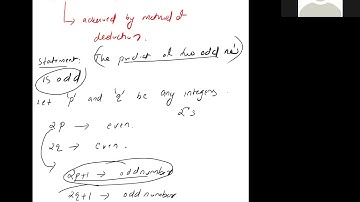 ↳ achieved by method of
deduction.
Statement: (The product of two odd no's)
is odd
let 'p' and 'q' be any integers.
2p → even.
2q → even.
2p+1 → odd number
2q+1 → odd number